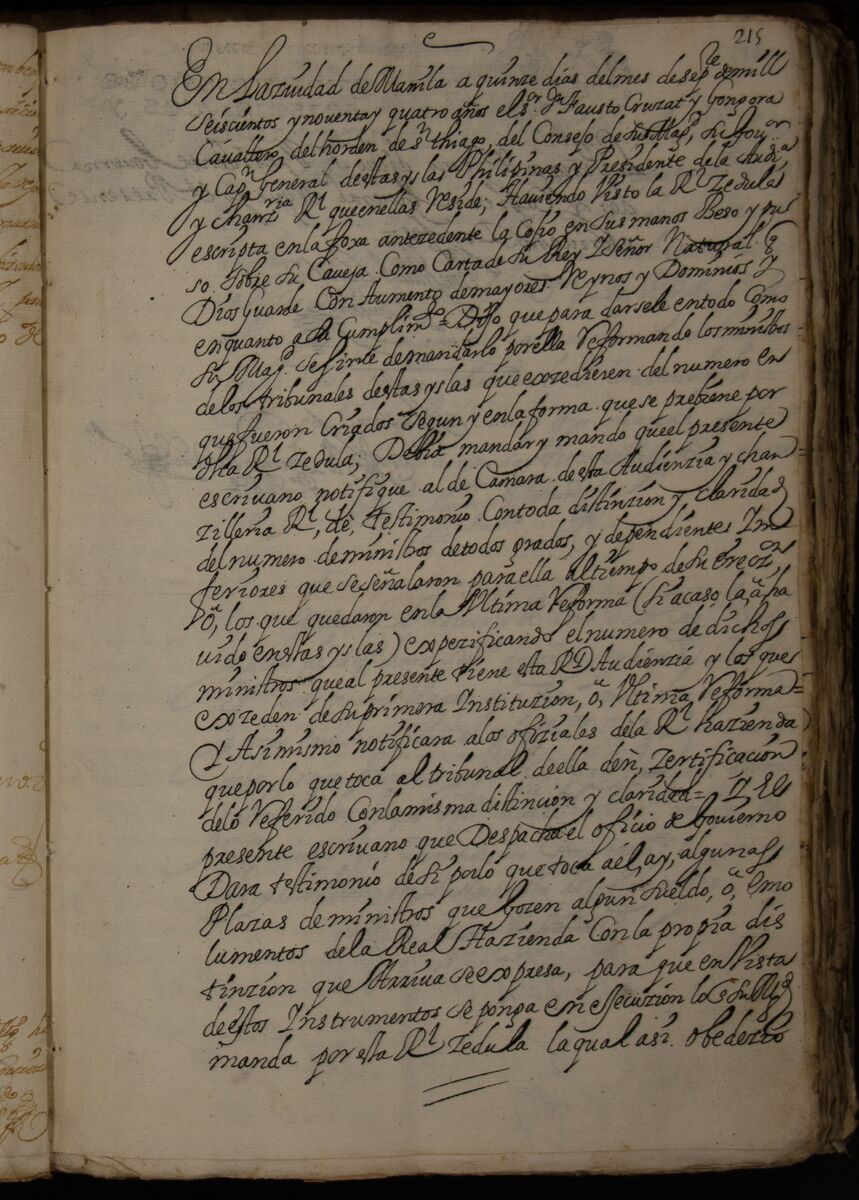 215
En la ziudad de Manila a quinze dias del mes de sepre de mill
seiscientos y noventa y quatro años el sor Dn Fausto Cruzat y Gongora
Cavallero del horden de sn thiago, del Consejo de su Magd, su Govor
y Capn General destas yslas Philipinas y Presidente de la Auda
y chanzria Rl que en ellas reside; Haviendo visto la Rl Zedula
escripta en la foxa antezedente la cojio en sus manos Beso y pu
so sobre su Caveja Como Carta de su Rey y señor Natural q
Dios Guarde Con Aumento de mayores Reynos y Dominios y
en quanto a su Cumplimto = Dijo que para darsele en todo como
su Magd se sirve de mandarlo por ella reformando los ministros
de los tribunales destas yslas que exzedieren del numero en
que fueron Criados segun y en la forma que se prebiene por
dha Rl Zedula; Debia mandar y mando que el presente
escrivano notifique al de Camara de esta Audienzia y chan=
zilleria Rl, de, testimonio Con toda distinzion y claridad
del numero de ministros de todos grados, y dependientes In
feriores que se señalaron para ella al tiempo de su erecon,
ò, los que quedaron en la Ultima reforma (si acaso la, a ha
uido en estas yslas) expezificando el numero de dichos
ministros que al presente tiene esta Rl Audienzia y los que
exzeden de su primera Instituzion, ò, Ultima reforma=
Y Asimismo notificara a los ofiziales de la Rl hazienda
que por lo que toca al tribunal de ella den, Zertificacion
de lo referido Con la misma distincion y claridad= Y el
presente escrivano que Despacha el oficio de Govierno
Dara testimonio de si por lo que toca a èl, ay, algunas
Plazas de ministros que Gozen algun sueldo, ò, emo
lumentos de la Real Hazienda Con la propia dis
tinzion que Arriva se expresa, para que en vista
de estos Instrumentos se ponga en ejecuzion lo q su Mgd
manda por esta Rl Zedula la qual asi obedezio